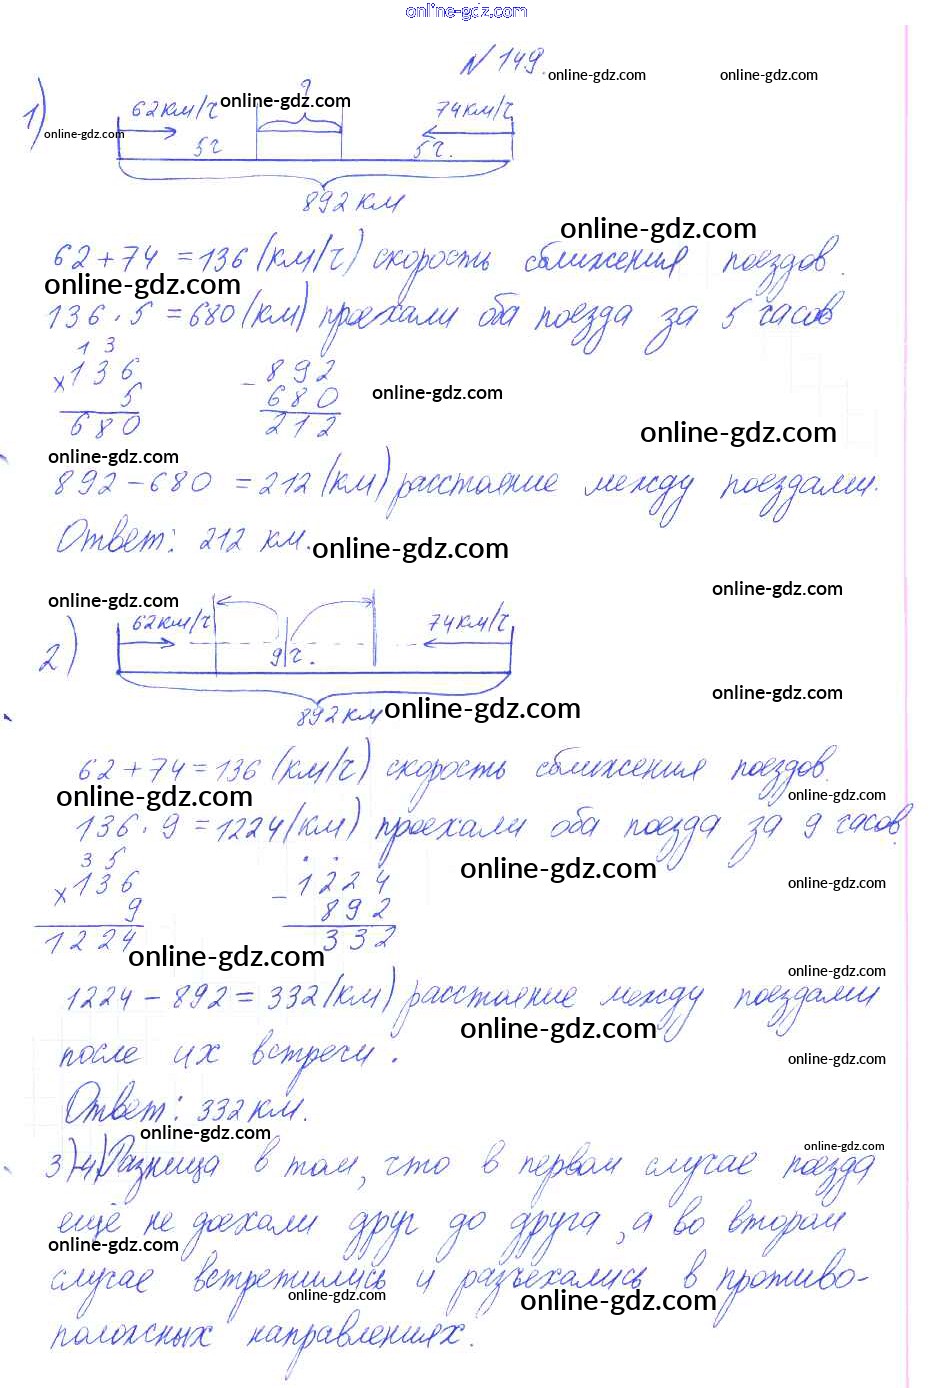 online-gdz.com
N 149.
online-gdz.com online-gdz.com
1) 62км/ч online-gdz.com ? 74км/ч
online-gdz.com
5ч 5ч.
892 км
online-gdz.com
62+74=136(км/ч) скорость сближения поездов.
online-gdz.com
136·5=680(км) проехали оба поезда за 5 часов
1 3
×136 -892
5 680
online-gdz.com
680 212
online-gdz.com
online-gdz.com
892-680=212(км) расстояние между поездами.
Ответ: 212 км.
online-gdz.com
online-gdz.com
online-gdz.com
62км/ч 74км/ч
2) 9ч.
online-gdz.com
892км online-gdz.com
62+74=136(км/ч) скорость сближения поездов.
online-gdz.com online-gdz.com
136·9=1224(км) проехали оба поезда за 9 часов
3 5
online-gdz.com
×136 -1224
online-gdz.com
9 892
1224 332
online-gdz.com
online-gdz.com
1224-892=332(км) расстояние между поездами
online-gdz.com
после их встречи.
online-gdz.com
Ответ: 332км.
online-gdz.com
online-gdz.com
3)-4) Разница в том, что в первом случае поезда
ещё не доехали друг до друга, а во втором
online-gdz.com
случае встретились и разъехались в противо-
online-gdz.com online-gdz.com
положных направлениях.